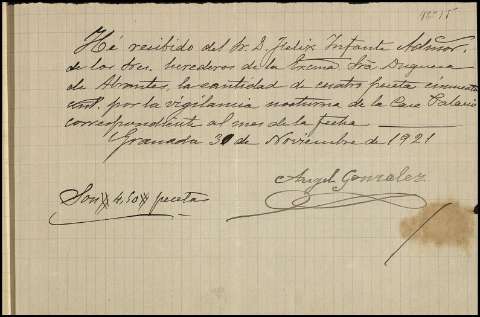 Hé recibido del Sr. D. Felix Infante Admor.
de los Sres. herederos de la Excma. Sra Duquesa
de Abrantes, la cantidad de cuatro pesetas cincuenta
cent. por la vigilancia nocturna de la Casa Palacio
correspondiente al mes de la fecha
Granada 30 de Noviembre de 1921
Angel Gonzalez
Son 4,50 pesetas